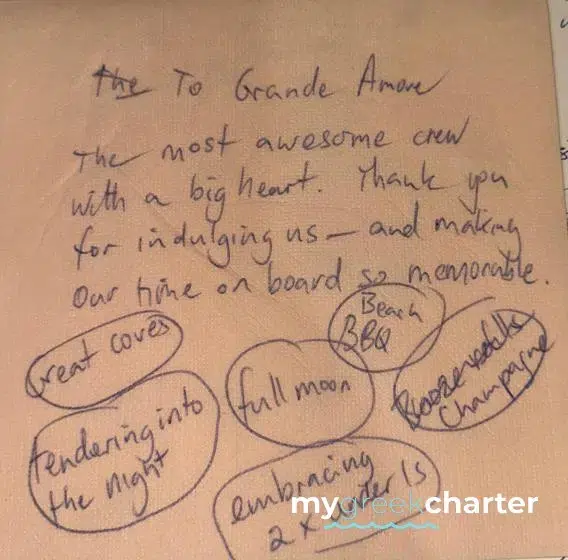 The To Grande Amore
The most awesome crew
with a big heart. Thank you
for indulging us – and making
our time on board so memorable.
Great coves
Beach
BBQ
full moon
Champagne
tendering into
the night
embracing
2 x
mygreekcharter